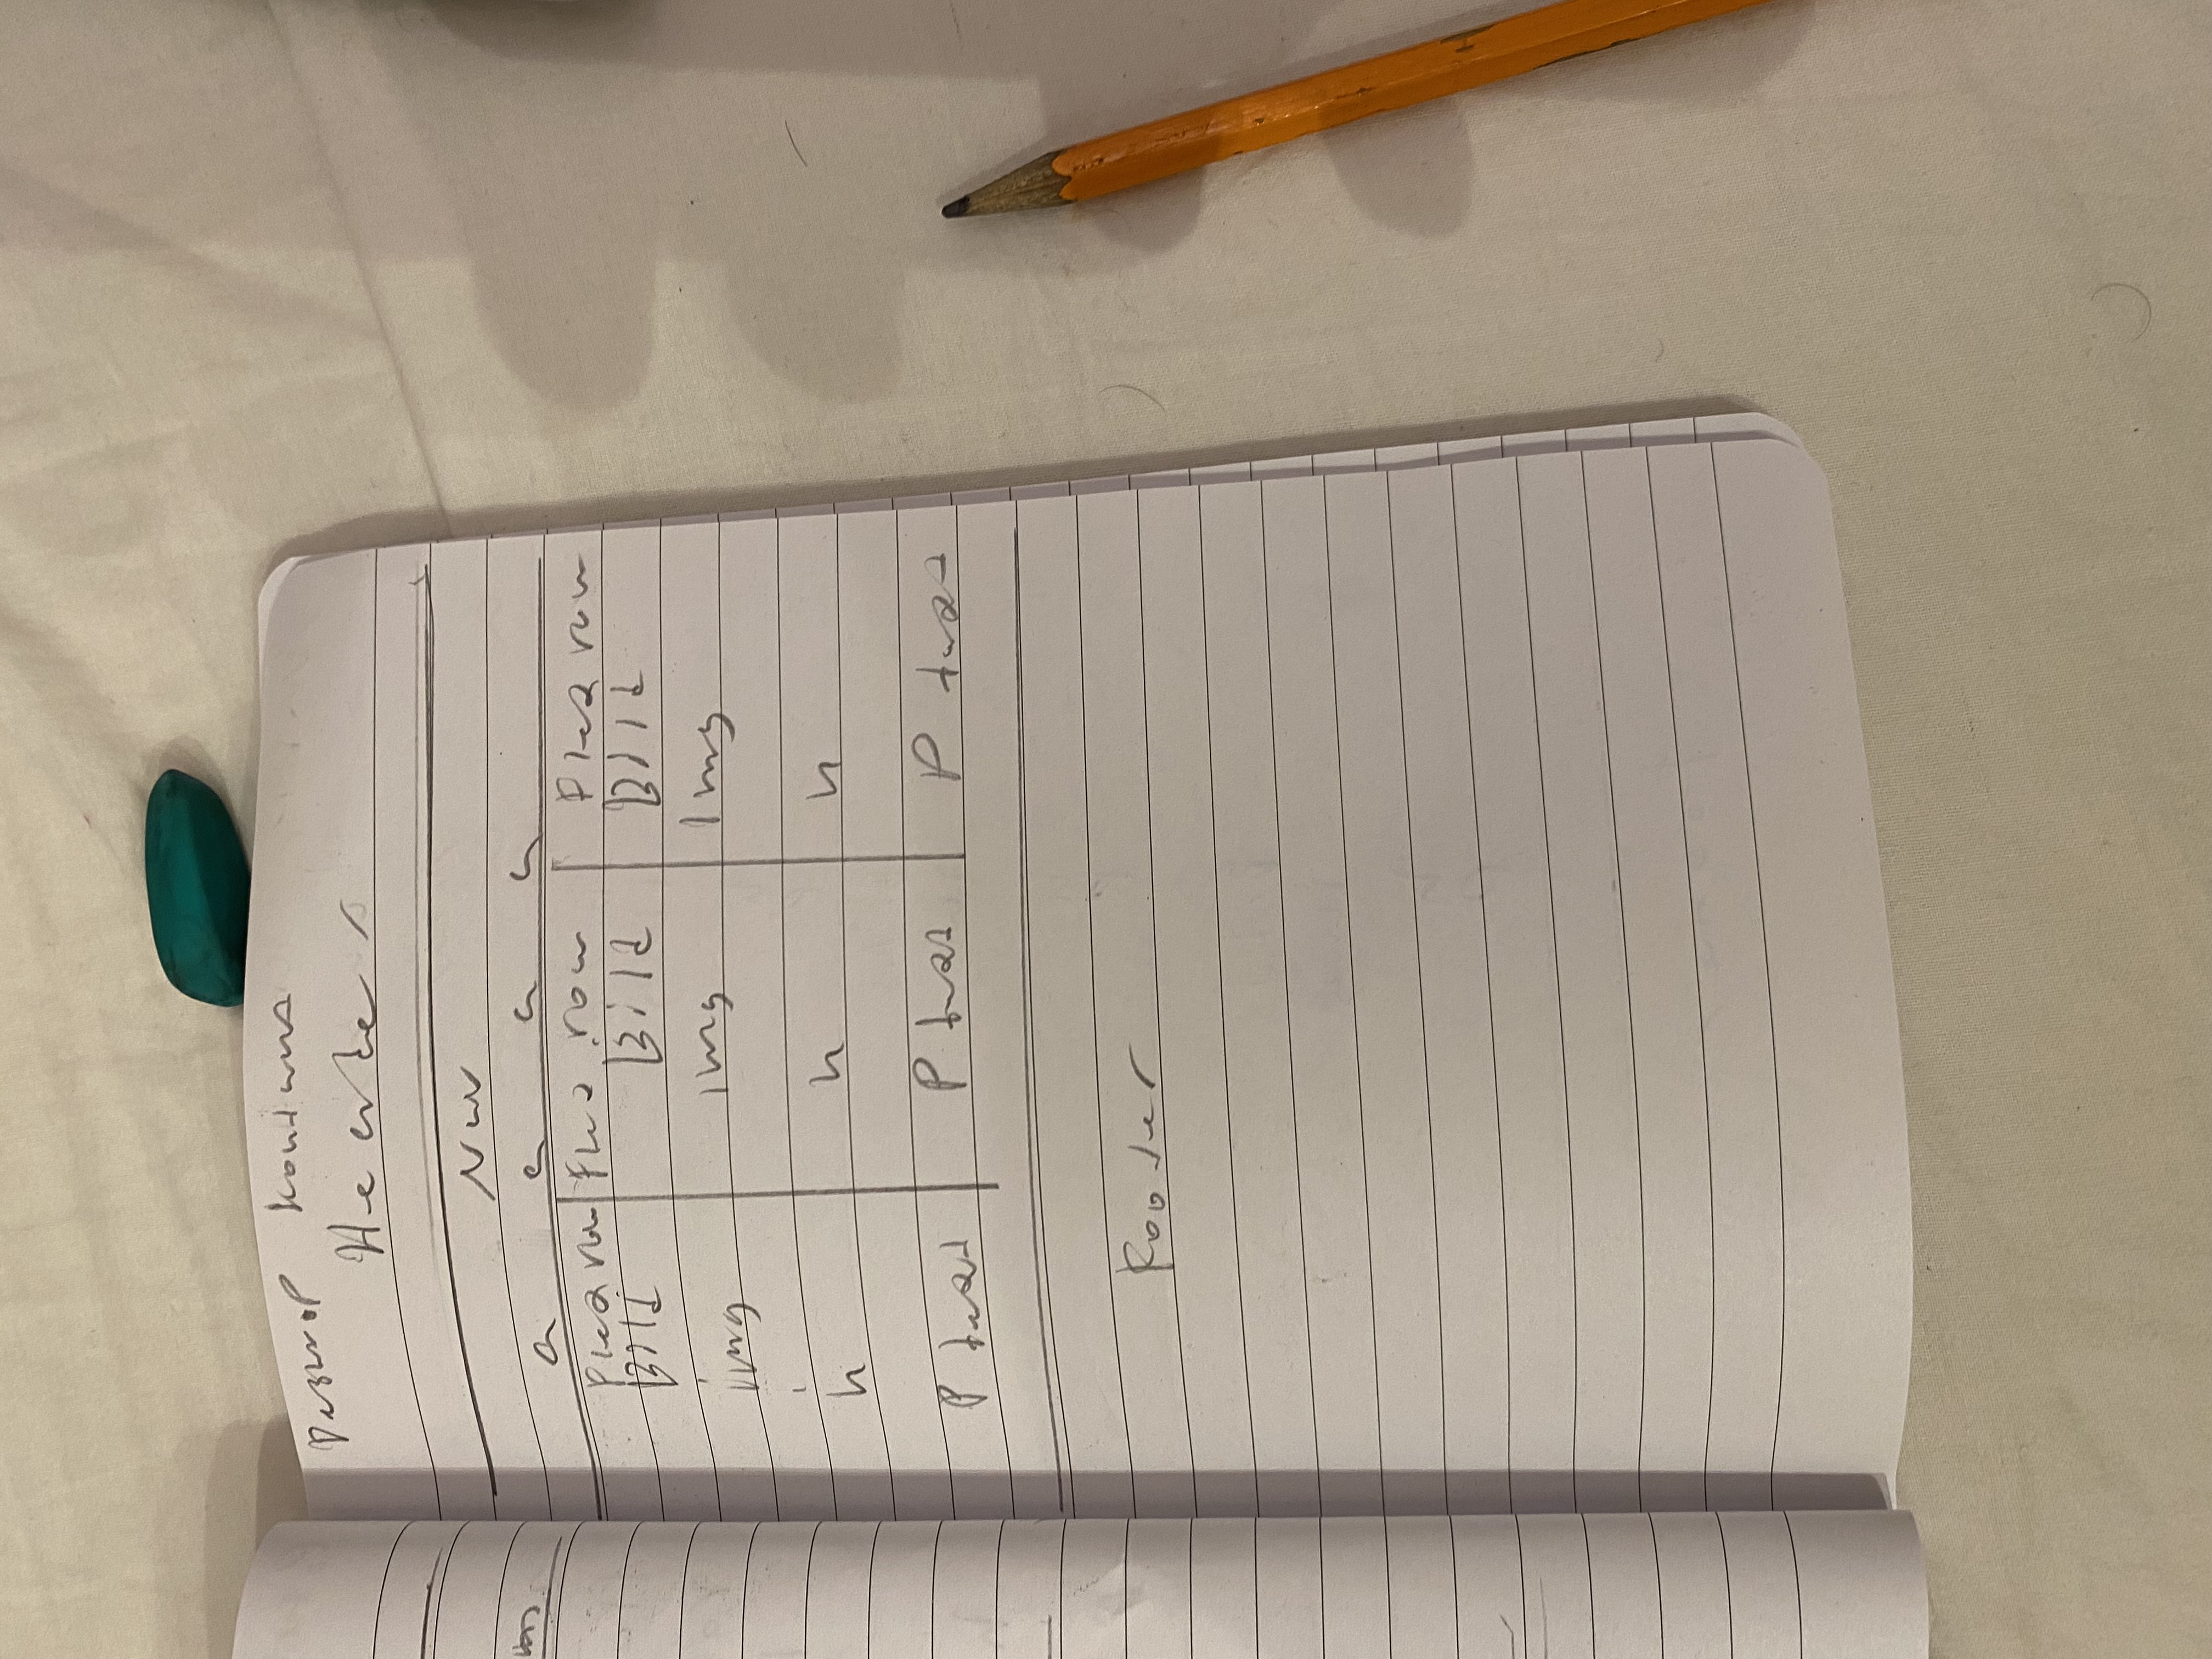 Header
Nav
a a a a
Flex row Flex row Flex row
Bild Bild Bild
img img img
h h h
P text P text P text
Footer